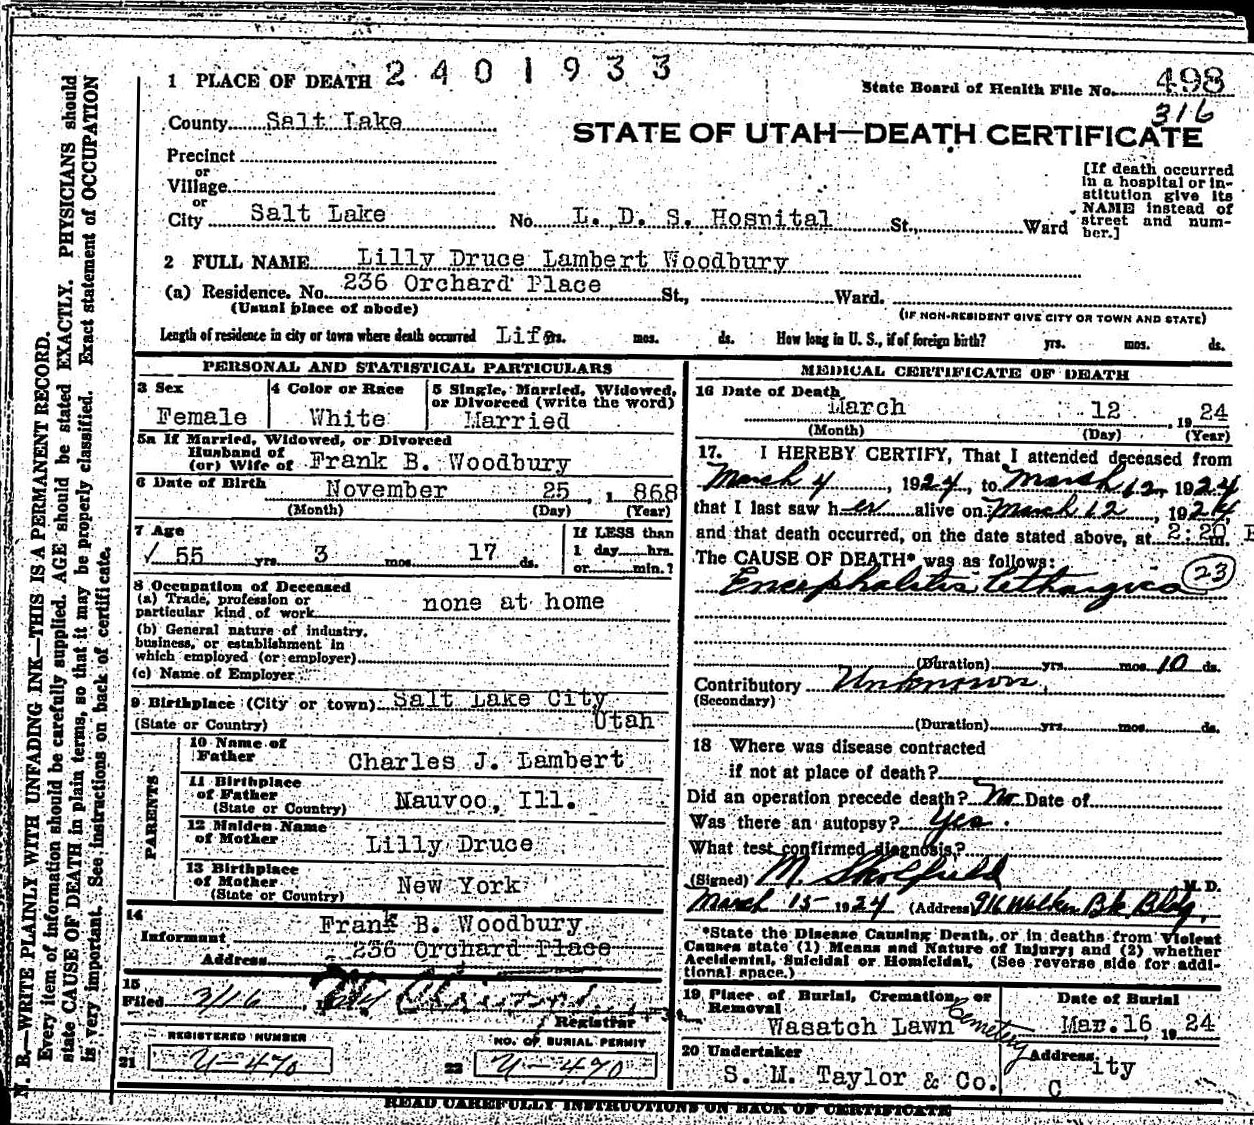 1 PLACE OF DEATH 2401933
State Board of Health File No. 498
316
County Salt Lake
STATE OF UTAH—DEATH CERTIFICATE
Precinct
or
Village
or
City Salt Lake No. L. D. S. Hospital St., Ward
[If death occurred
in a hospital or in-
stitution give its
NAME instead of
street and num-
ber.]
2 FULL NAME Lilly Druce Lambert Woodbury
(a) Residence. No. 236 Orchard Place St., Ward.
(Usual place of abode) (IF NON-RESIDENT GIVE CITY OR TOWN AND STATE)
Length of residence in city or town where death occurred Life yrs. mos. ds. How long in U. S., if of foreign birth? yrs. mos. ds.
PERSONAL AND STATISTICAL PARTICULARS
3 Sex
Female
4 Color or Race
White
5 Single, Married, Widowed,
or Divorced (write the word)
Married
5a If Married, Widowed, or Divorced
Husband of
(or) Wife of Frank B. Woodbury
6 Date of Birth November 25, 1868
(Month) (Day) (Year)
7 Age
55 yrs. 3 mos. 17 ds.
If LESS than
1 day hrs.
or min.?
8 Occupation of Deceased
(a) Trade, profession or
particular kind of work none at home
(b) General nature of industry,
business, or establishment in
which employed (or employer)
(c) Name of Employer
9 Birthplace (City or town) Salt Lake City
(State or Country) Utah
PARENTS
10 Name of
Father Charles J. Lambert
11 Birthplace
of Father
(State or Country) Nauvoo, Ill.
12 Maiden Name
of Mother Lilly Druce
13 Birthplace
of Mother
(State or Country) New York
14
Informant Frank B. Woodbury
Address 236 Orchard Place
15
Filed 3/16
Registrar
REGISTERED NUMBER
21 U-470
NO. OF BURIAL PERMIT
22 U-470
MEDICAL CERTIFICATE OF DEATH
16 Date of Death
March 12, 1924
(Month) (Day) (Year)
17. I HEREBY CERTIFY, That I attended deceased from
March 4, 1924, to March 12, 1924
that I last saw her alive on March 12, 1924,
and that death occurred, on the date stated above, at 2:20 m.
The CAUSE OF DEATH* was as follows:
Encephalitis Lethargica 23
(Duration) yrs. mos. 10 ds.
Contributory Unknown
(Secondary)
(Duration) yrs. mos. ds.
18 Where was disease contracted
if not at place of death?
Did an operation precede death? No Date of
Was there an autopsy? Yes.
What test confirmed diagnosis?
(Signed) M. Skolfield M. D.
March 15 1924 (Address 916 Walker Bk Bldg.
*State the Disease Causing Death, or in deaths from Violent
Causes state (1) Means and Nature of Injury; and (2) whether
Accidental, Suicidal or Homicidal. (See reverse side for addi-
tional space.)
19 Place of Burial, Cremation, or
Removal
Wasatch Lawn Cemetery
Date of Burial
Mar. 16, 1924
20 Undertaker
S. M. Taylor & Co.
Address
City
READ CAREFULLY INSTRUCTIONS ON BACK OF CERTIFICATE
N. B.—WRITE PLAINLY WITH UNFADING INK—THIS IS A PERMANENT RECORD.
Every item of information should be carefully supplied. AGE should be stated EXACTLY. PHYSICIANS should
state CAUSE OF DEATH in plain terms, so that it may be properly classified. Exact statement of OCCUPATION
is very important. See instructions on back of certificate.